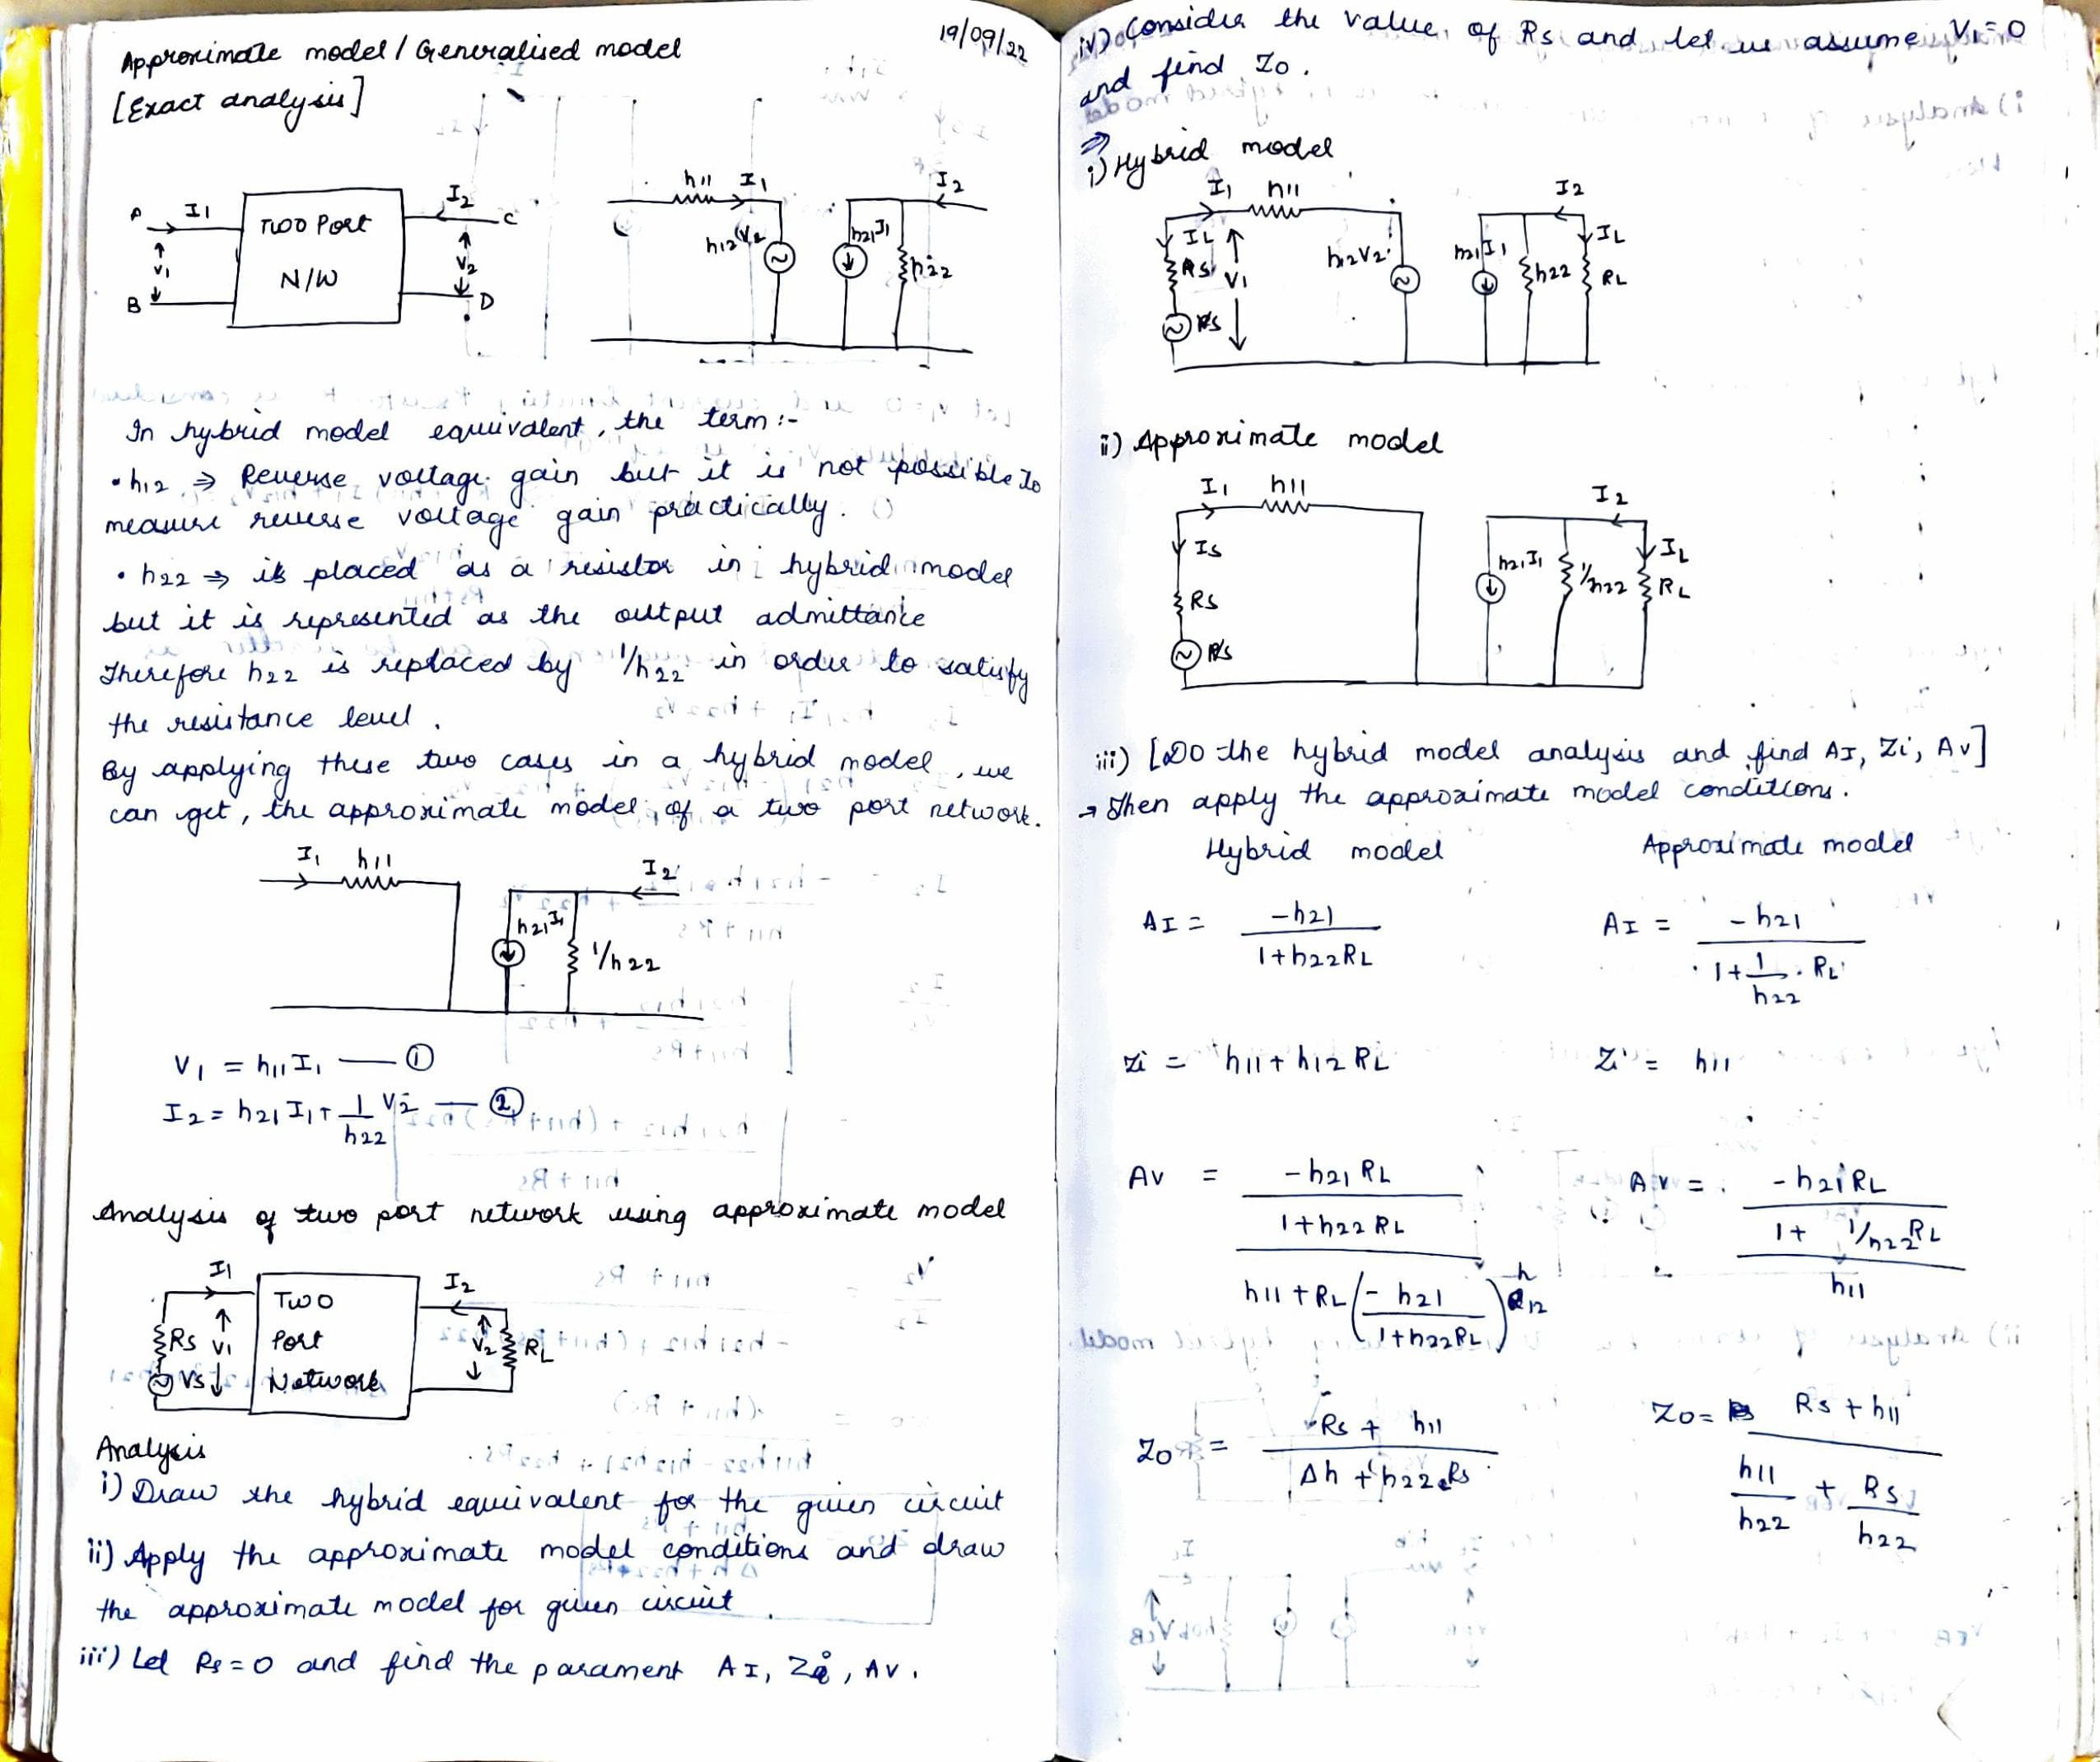 Approximate model / Generalised model
19/09/22
[Exact analysis]
A I1 Two Port I2 C
V1 N/W V2
B D
h11 I1 I2
h12V2 h21I1 h22
In hybrid model equivalent, the term :-
• h12 ⇒ Reverse voltage gain but it is not possible to
measure reverse voltage gain practically.
• h22 ⇒ is placed as a resistor in hybrid model
but it is represented as the output admittance
Therefore h22 is replaced by 1/h22 in order to satisfy
the resistance level.
By applying these two cases in a hybrid model, we
can get, the approximate model of a two port network.
I1 h11 I2
h21I1 1/h22
V1 = h11 I1 — ①
I2 = h21 I1 + 1/h22 V2 — ②
Analysis of two port network using approximate model
I1 Two I2
Rs V1 Port V2 RL
Vs Network
Analysis
i) Draw the hybrid equivalent for the given circuit
ii) Apply the approximate model conditions and draw
the approximate model for given circuit
iii) Let Rs = 0 and find the parament AI, Zi, AV.
iv) Consider the value of Rs and let us assume V1 = 0
and find Zo.
⇒
i) Hybrid model
I1 h11 I2
IL Rs V1 h12V2 h21I1 h22 IL RL
Vs
ii) Approximate model
I1 h11 I2
Is h21I1 1/h22 IL RL
Rs
Vs
iii) [Do the hybrid model analysis and find AI, Zi, Av]
→ Then apply the approximate model conditions.
Hybrid model Approximate model
AI = -h21 / 1+h22RL AI = -h21 / 1+ 1/h22 . RL
Zi = h11 + h12 RL Zi = h11
AV = -h21 RL / 1+h22 RL / h11 + RL (-h21 / 1+h22RL) h12 AV = -h21RL / 1+ 1/h22 RL / h11
Zo = Rs + h11 / Δh + h22 Rs Zo = Rs + h11 / h11/h22 + Rs/h22